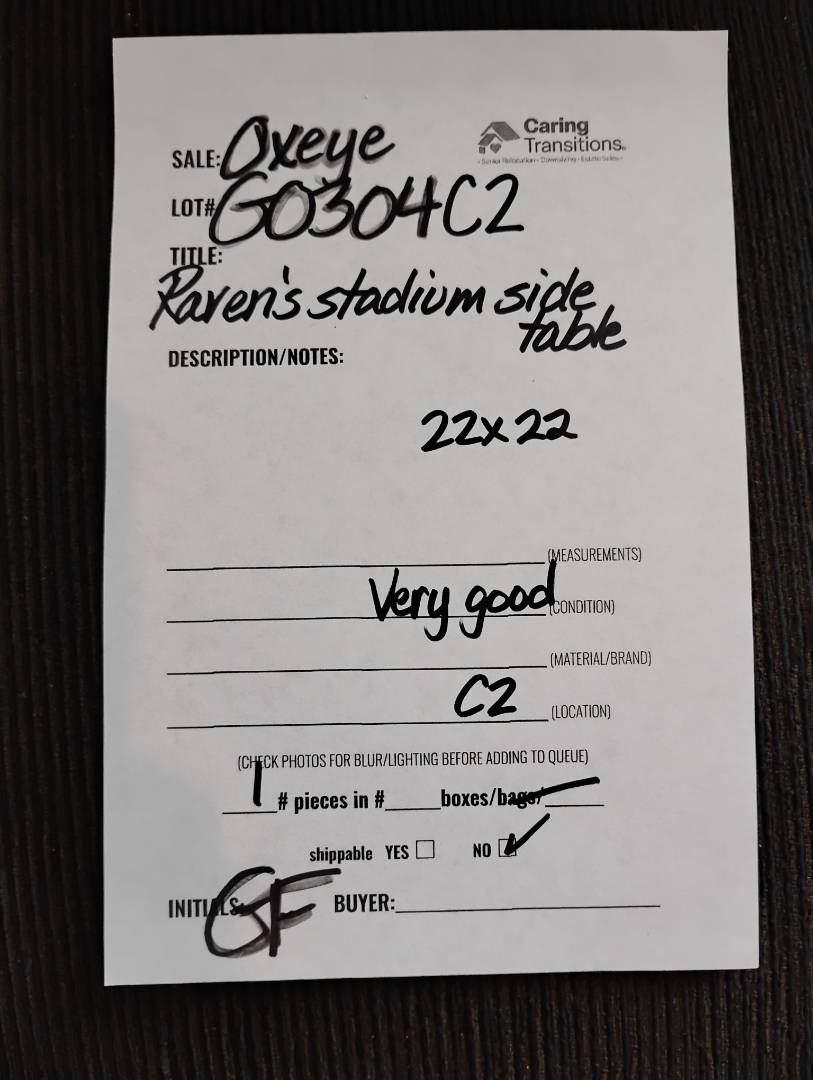 SALE: Oxeye
Caring
Transitions®
- Senior Relocation - Downsizing - Estate Sales -
LOT# GO304C2
TITLE:
Raven's stadium side
table
DESCRIPTION/NOTES:
22x22
(MEASUREMENTS)
Very good (CONDITION)
(MATERIAL/BRAND)
C2 (LOCATION)
(CHECK PHOTOS FOR BLUR/LIGHTING BEFORE ADDING TO QUEUE)
1 # pieces in #_____boxes/bags/_____
shippable YES ☐ NO ☑
INITIALS: GF BUYER: